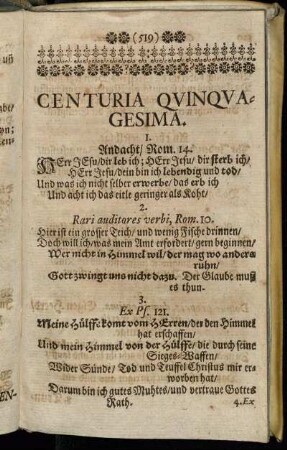 (519)
CENTURIA QVINQVA-
GESIMA.
1.
Andacht/ Rom. 14.
HErr JEsu/ dir leb ich; HErr Jesu/ dir sterb ich/
HErr Jesu/ dein bin ich lebendig und tod/
Und was ich nicht selber erwerbe/ das erb ich
Und acht ich das eitle geringer als Koht/
2.
Rari auditores verbi, Rom. 10.
Hier ist ein grosser Teich/ und wenig Fische drinnen/
Doch will ich/ was mein Amt erfordert/ gern beginnen/
Wer nicht in Himmel wil/ der mag wo anders
ruhn/
Gott zwingt uns nicht dazu. Der Glaube muß
es thun.
3.
Ex Ps. 121.
Meine Hülffe komt vom HErren/ der den Himmel
hat erschaffen/
Und mein Himmel von der Hülffe/ die durch seine
Sieges-Waffen/
Wider Sünde/ Tod und Teuffel Christus mir er-
worben hat/
Darum bin ich gutes Muhtes/ und vertraue Gottes
Rath.
4. Ex